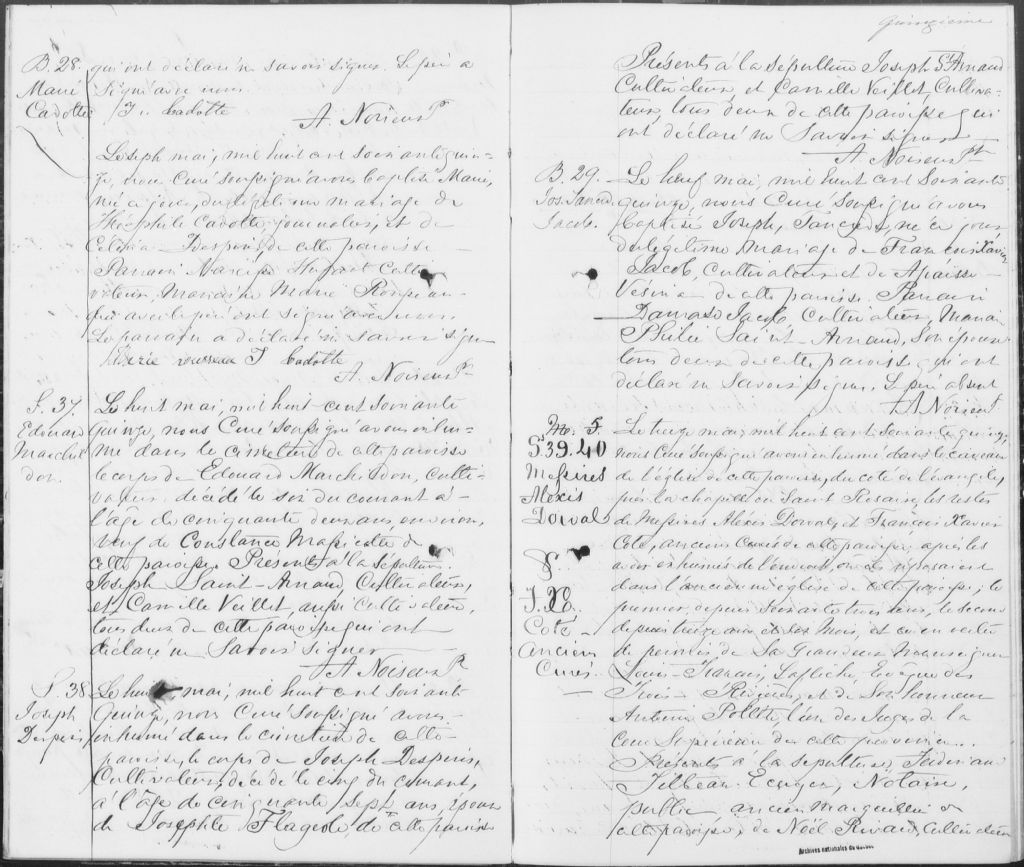 B. 28.
Marie
Cadotte
qui ont déclaré ne savoir signer. Le père a
Signé avec nous.
T. Cadotte
A. Noiseux Ptr
Le sept mai, mil huit cent soixante quin-
ze, nous Curé soussigné avons baptisé Marie,
née ce jour, du légitime mariage de
Théophile Cadotte, journalier, et de
de cette paroisse
Parrain Narcisse Culti-
vateur, Marraine Marie
qui avec le père ont signé avec nous.
Le parrain a déclaré ne savoir signer
Marie rousseau T. Cadotte
A. Noiseux Ptr
S. 37.
Edouard
Marchil-
don.
Le huit mai, mil huit-cent soixante
quinze, nous Curé soussigné avons inhu-
mé dans le cimetière de cette paroisse
le corps de Edouard Marchildon, culti-
vateur décédé le six du courant à
l'âge de cinquante deux ans, environ,
veuf de Constance Massicotte de
cette paroisse. Présents à la sépulture
Joseph Saint-Arnaud, Cultivateur,
et Camille Veillet, aussi Cultivateur,
tous deux de cette paroisse qui ont
déclaré ne Savoir Signer
A Noiseux Ptr
S. 38
Joseph
Desperis
Le huit mai, mil huit cent soixante
Quinze, nous Curé soussigné avons
inhumé dans le cimetière de cette
paroisse, le corps de Joseph Desperis,
Cultivateur, décédé le cinq du courant,
à l'âge de cinquante Sept ans, époux
de Josephte Flageole, de cette paroisse
quinzième
Présents à la sépulture Joseph St Arnaud
Cultivateur et Camille Veillet, Cultiva-
teur, tous deux de cette paroisse qui
ont déclaré ne Savoir signer
A. Noiseux Ptr
B. 29.
Jos. Tancrède
Jacob.
Le neuf mai, mil huit cent Soixante
quinze, nous Curé Soussigné avons
baptisé Joseph, Tancrède, né ce jour
du légitime mariage de François Xavier
Jacob, Cultivateur et de
de cette paroisse. Parrain
Damase Jacob Cultivateur, Marraine
Philie Saint-Arnaud, Son épouse
tous deux de cette paroisse qui ont
déclaré ne Savoir Signer. Le père absent
A Noiseux Ptr
No. 5
Ss 39.40
Messires
Alexis
Dorval
&
F. X.
Coté
anciens
Curés.
Le treize mai, mil huit cent soixante quinze,
nous Curé Soussigné avons inhumé dans le caveau
de l'église de cette paroisse, du coté de l'évangile,
près la chapelle du Saint Rosaire, les restes
de Messires Alexis Dorval, et François Xavier
Coté, anciens Curés de cette paroisse, après les
avoir exhumés de l'endroit où ils reposaient
dans l'ancienne église de cette paroisse, le
premier depuis soixante trois ans, le second
depuis treize ans et six mois, et ce en vertu
de permis de Sa Grandeur Monseigneur
Louis-François Laflèche, Evêque des
Trois-Rivières, et de Son honneur
Antoine Polette, l'un des Juges de la
Cour Supérieure de cette province.
Présents à la sépulture, Ferdinand
Filteau, Ecuyer, Notaire,
public ancien marguillier de
cette paroisse, de Noël Rivard, Cultivateur
Archives nationales du Québec